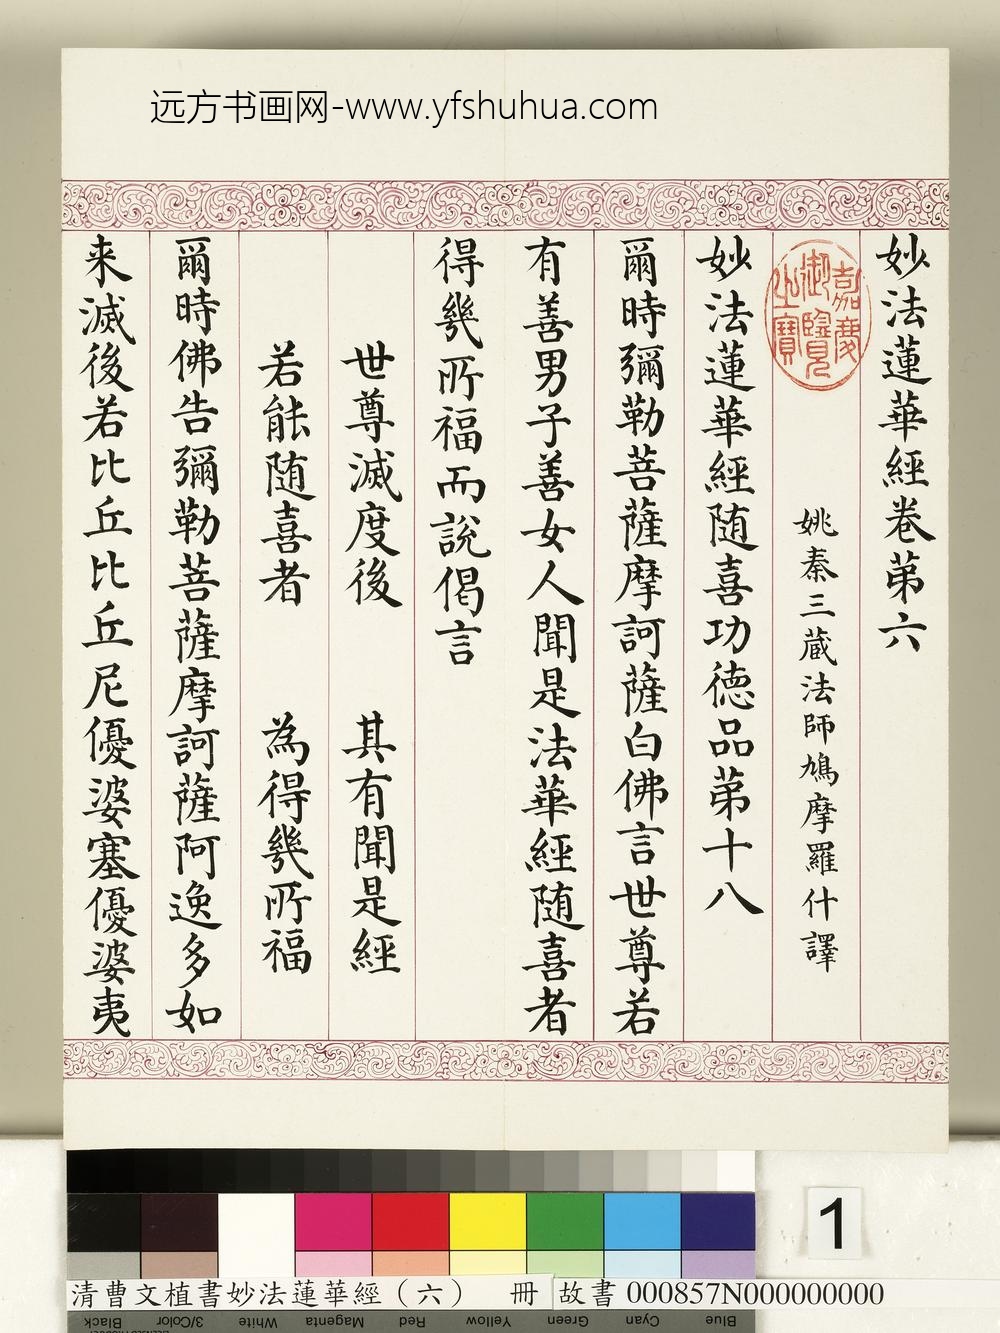 远方书画网-www.yfshuhua.com
妙法蓮華經卷第六
嘉慶御覽之寶
姚秦三藏法師鳩摩羅什譯
妙法蓮華經随喜功德品第十八
爾時彌勒菩薩摩訶薩白佛言世尊若
有善男子善女人聞是法華經随喜者
得幾所福而說偈言
世尊滅度後 其有聞是經
若能随喜者 為得幾所福
爾時佛告彌勒菩薩摩訶薩阿逸多如
来滅後若比丘比丘尼優婆塞優婆夷
1
清曹文植書妙法蓮華經（六） 冊 故書 000857N000000000
Black 3/Color White Magenta Red Yellow Green Cyan Blue